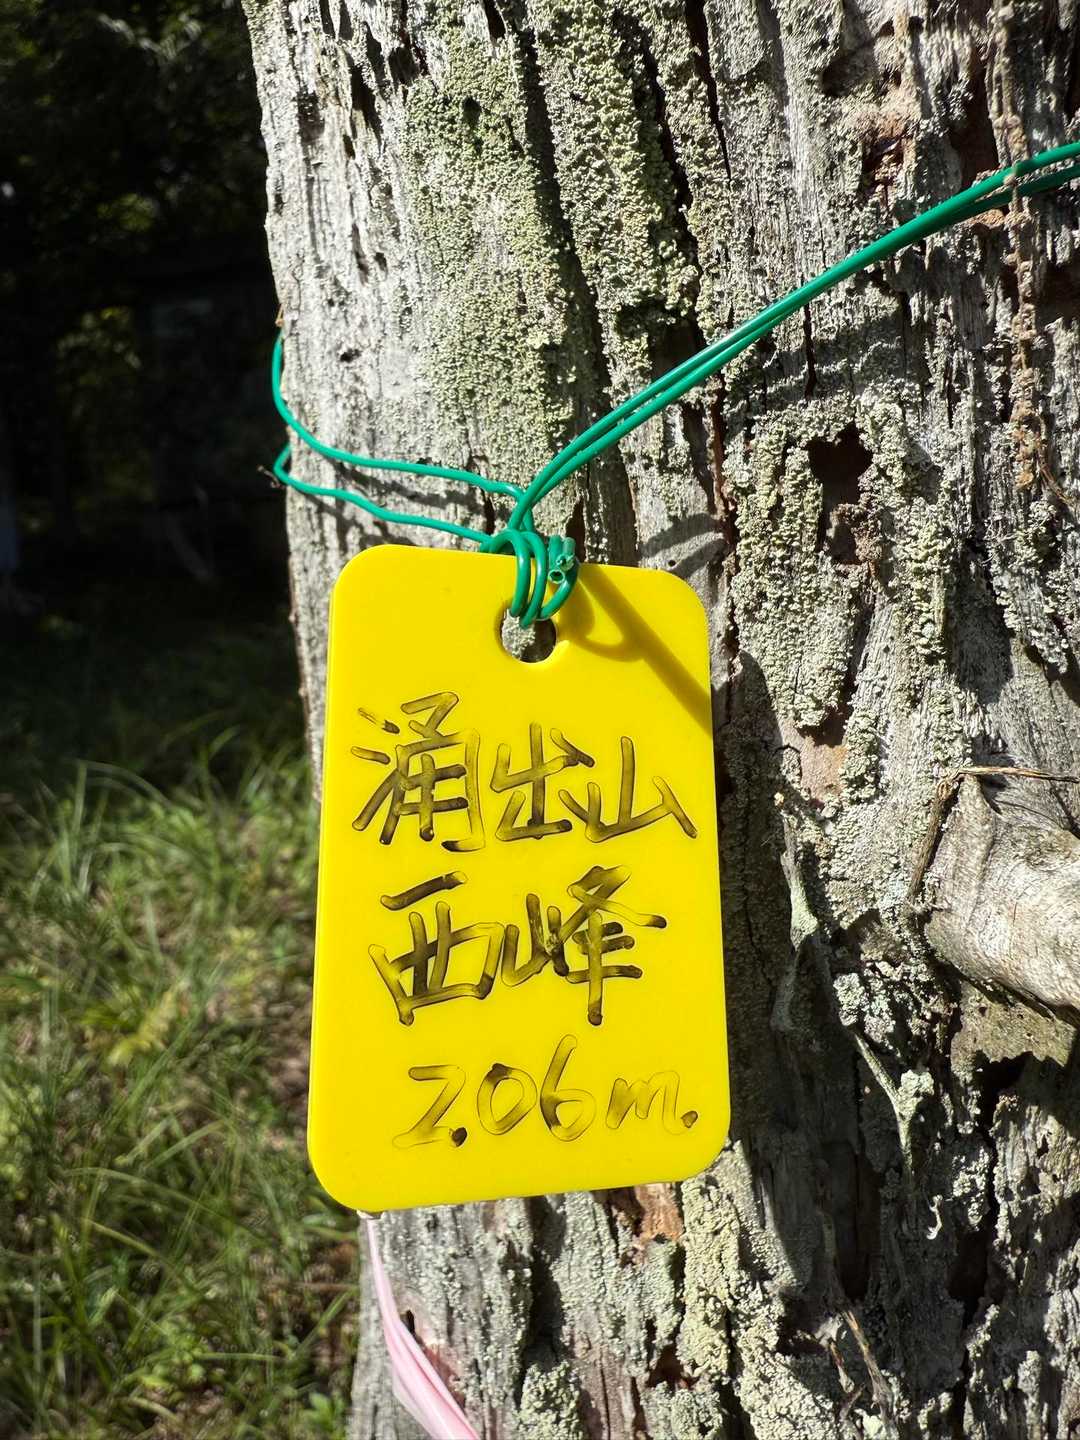 涌出山
西峰
206m.